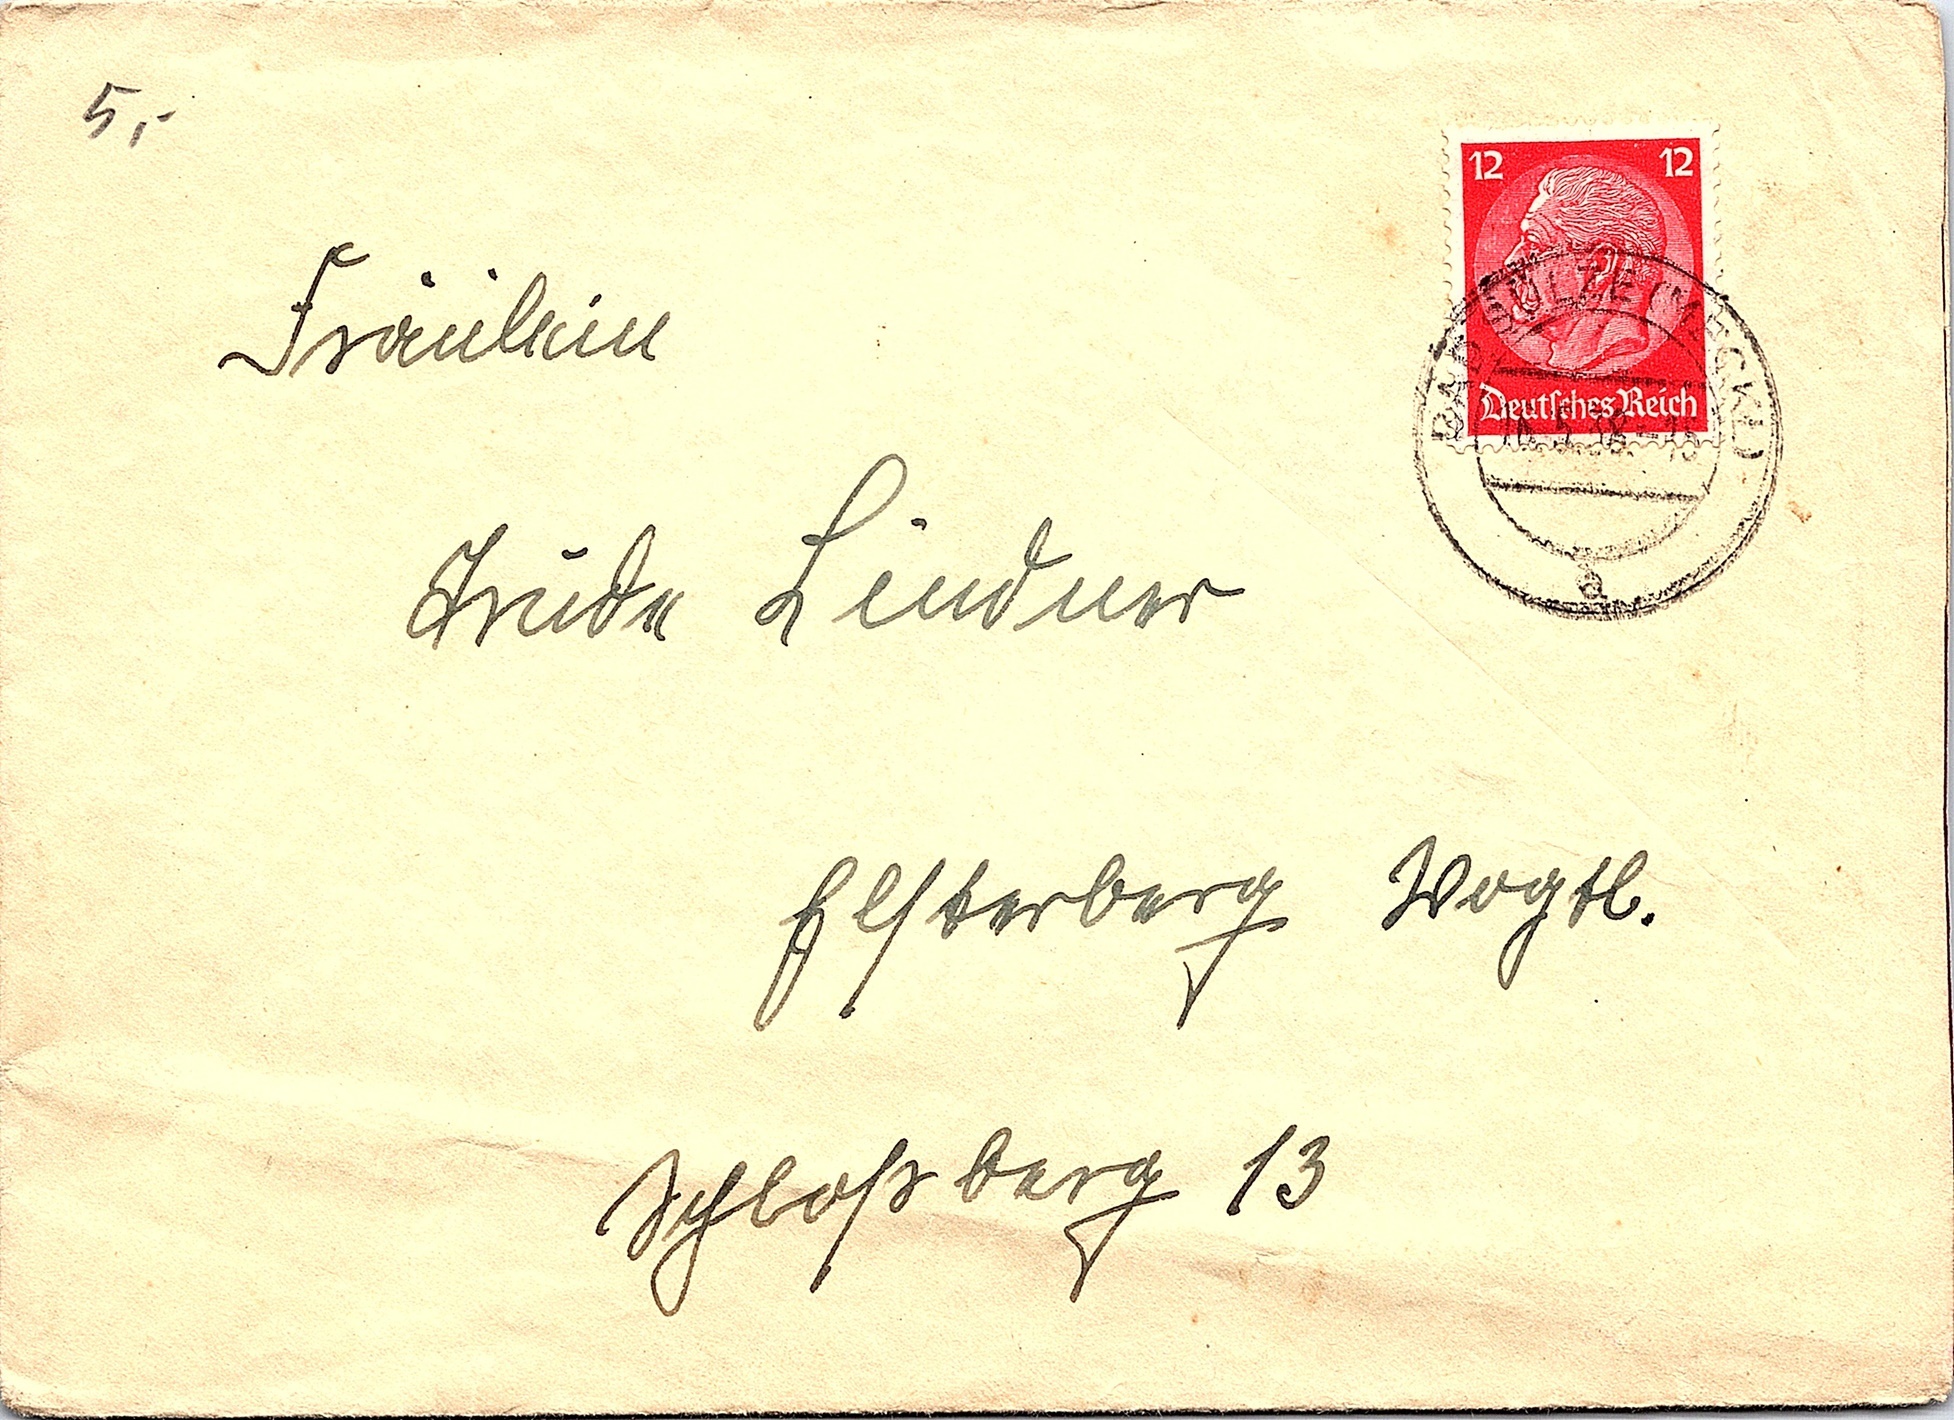 5,-
12 12
Deutsches Reich
BAD SÜLZE (MECKL)
5.38
a
Fräulein
Trude Lindner
Elsterberg Vogtl.
Schloßberg 13